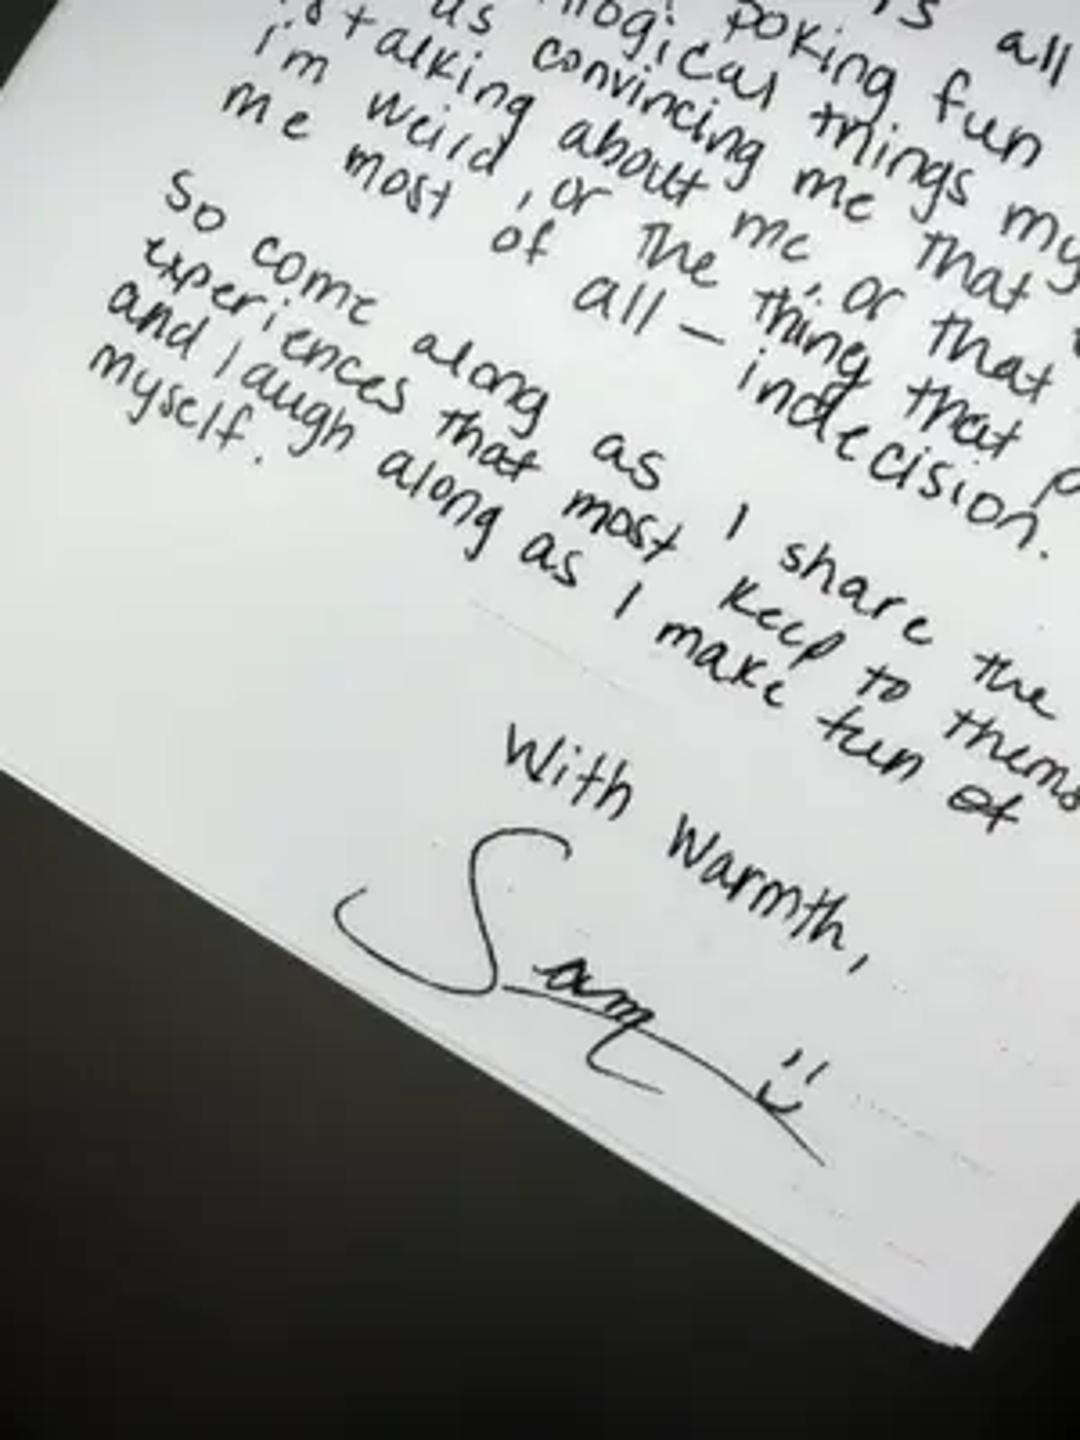 all
poking fun
things my
us convincing me that
talking about me, or that
i'm weird, or the thing that
me most of all — indecision.
So come along as I share the
experiences that most keep to thems
and laugh along as I make fun of
myself.
With Warmth,
Sam